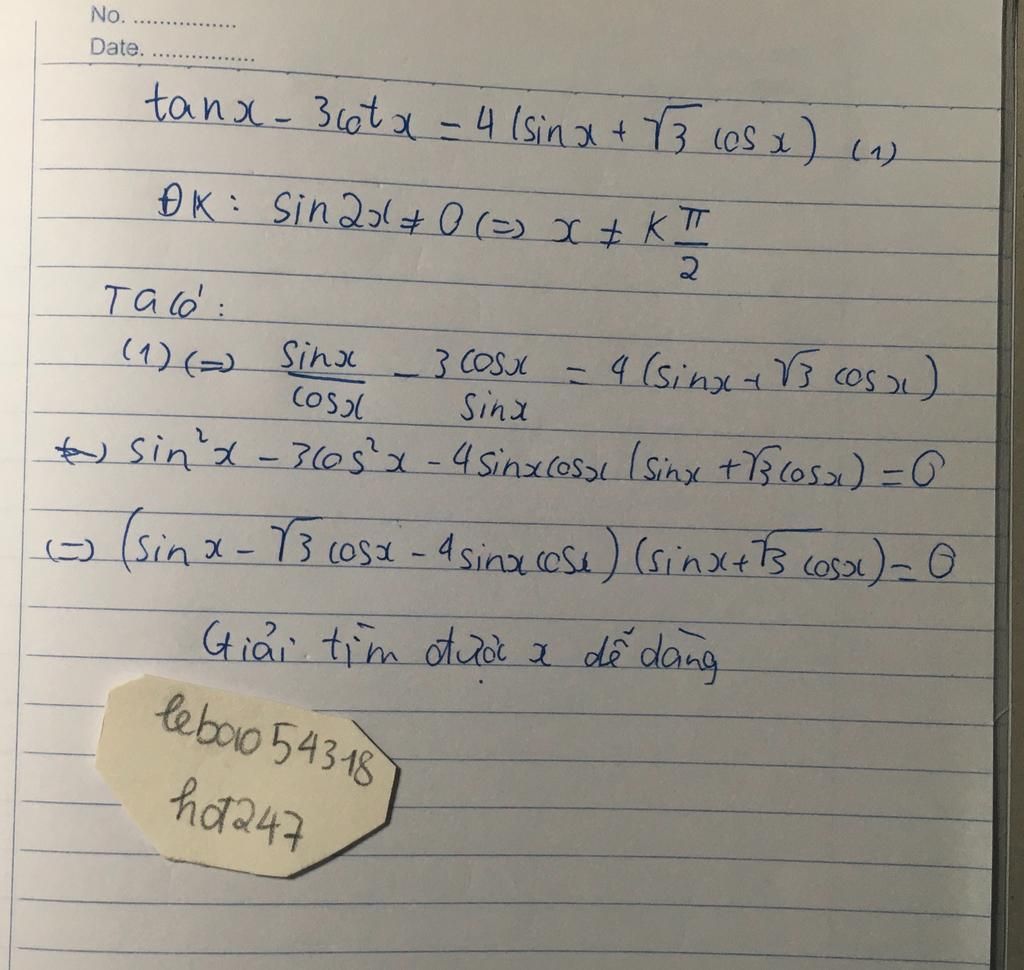 No. ................
Date. ................
tanx - 3cotx = 4(sinx + √3 cosx) (1)
ĐK: sin2x ≠ 0 (=) x ≠ K π/2
Ta có:
(1) (=) sinx/cosx - 3cosx/sinx = 4(sinx + √3 cosx)
(=) sin²x - 3cos²x - 4sinxcosx (sinx + √3cosx) = 0
(=) (sinx - √3 cosx - 4sinxcosx) (sinx + √3 cosx) = 0
Giải tìm được x dễ dàng
lebao54318
hoc247